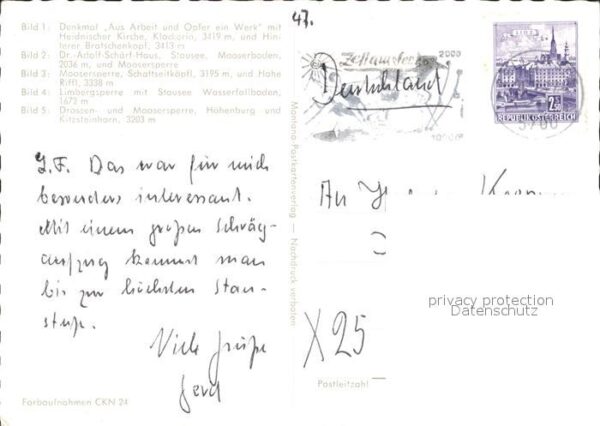 Bild 1: Denkmal „Aus Arbeit und Opfer ein Werk" mit
Heidnischer Kirche, Klockerin, 3419 m, und Hin-
terer Bratschenkopf, 3413 m
Bild 2: Dr.-Adolf-Schärf-Haus, Stausee, Mooserboden,
2036 m, und Moosersperre
Bild 3: Moosersperre, Schattseitköpfl, 3195 m, und Hohe
Riffl, 3338 m
Bild 4: Limbergsperre mit Stausee Wasserfallboden,
1672 m
Bild 5: Drossen- und Moosersperre, Höhenburg und
Kitzsteinhorn, 3203 m
J.F. Das war für mich
besonders interessant.
Mit einem großen Schräg-
aufzug kommt man
bis zur höchsten Stau-
stufe.
Viele Grüße
Gerd
Farbaufnahmen CKN 24
Montana Postkartenverlag — Nachdruck verboten
47.
Zell am See
2000
Deutschland
LINZ
2.50
REPUBLIK ÖSTERREICH
5700
An
X 25
Postleitzahl
privacy protection
Datenschutz